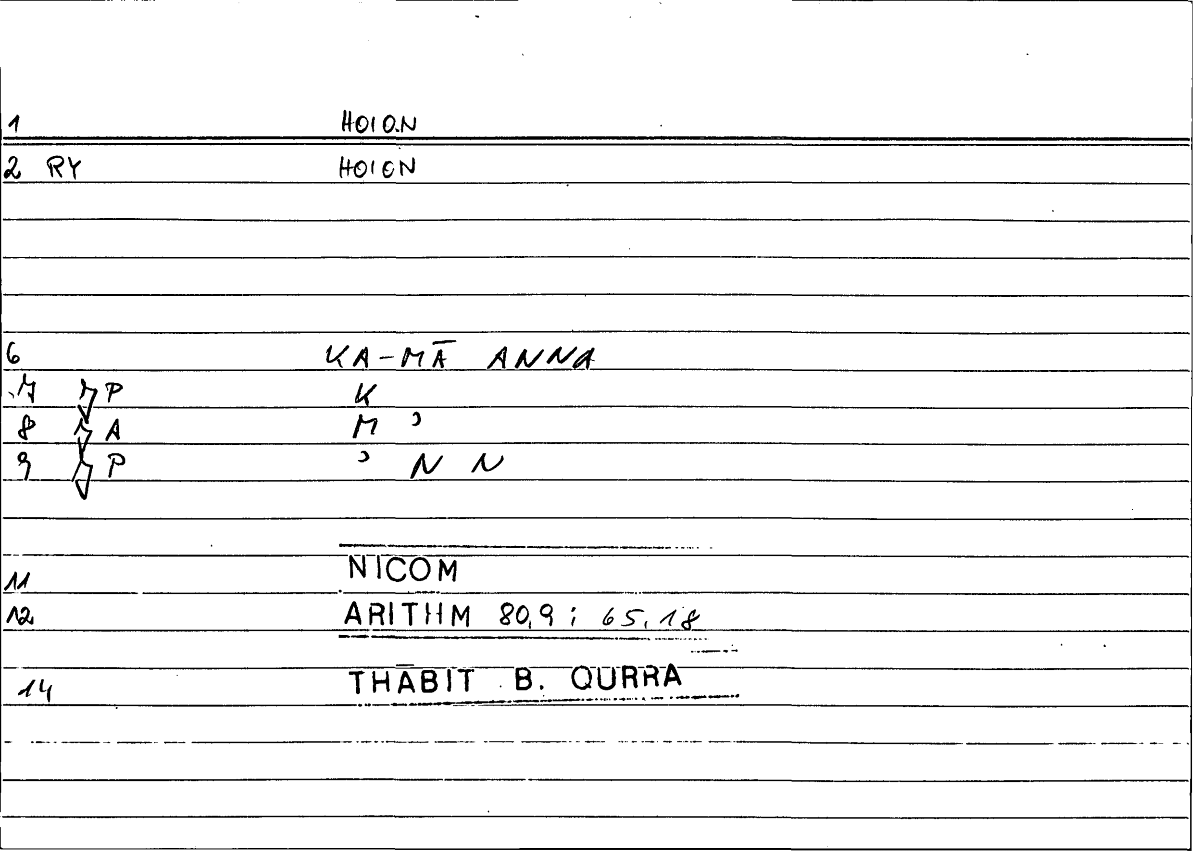 1 HOION
2 RY HOION
6 KA-MĀ ANNA
7 P K
8 A M ʾ
9 P ʾ N N
11 NICOM
12 ARITHM 80,9; 65,18
14 THĀBIT B. QURRA